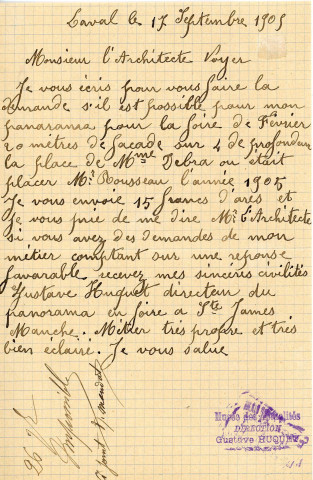 Laval le 17 Septembre 1905
Monsieur l'Architecte Voyer
Je vous écris pour vous faire la
demande s'il est possible pour mon
panarama pour la foire de Fevrier
20 métres de façade sur 4 de profondeur
la place de Mme Debra ou etait
placer Mr Rousseau l'année 1905
Je vous envoie 15 francs d'ares et
Je vous prie de me dire Mr l'Architecte
si vous avez des demandes de mon
métier comptant sur une reponse
favarable recevez mes sincéris civilités
Gustave Huguet directeur du
panorama en foire a Ste James
Manche. Métier très propre et très
bien éclairé. Je vous salue
Musée des
DIRECTION
Gustave HUGUET